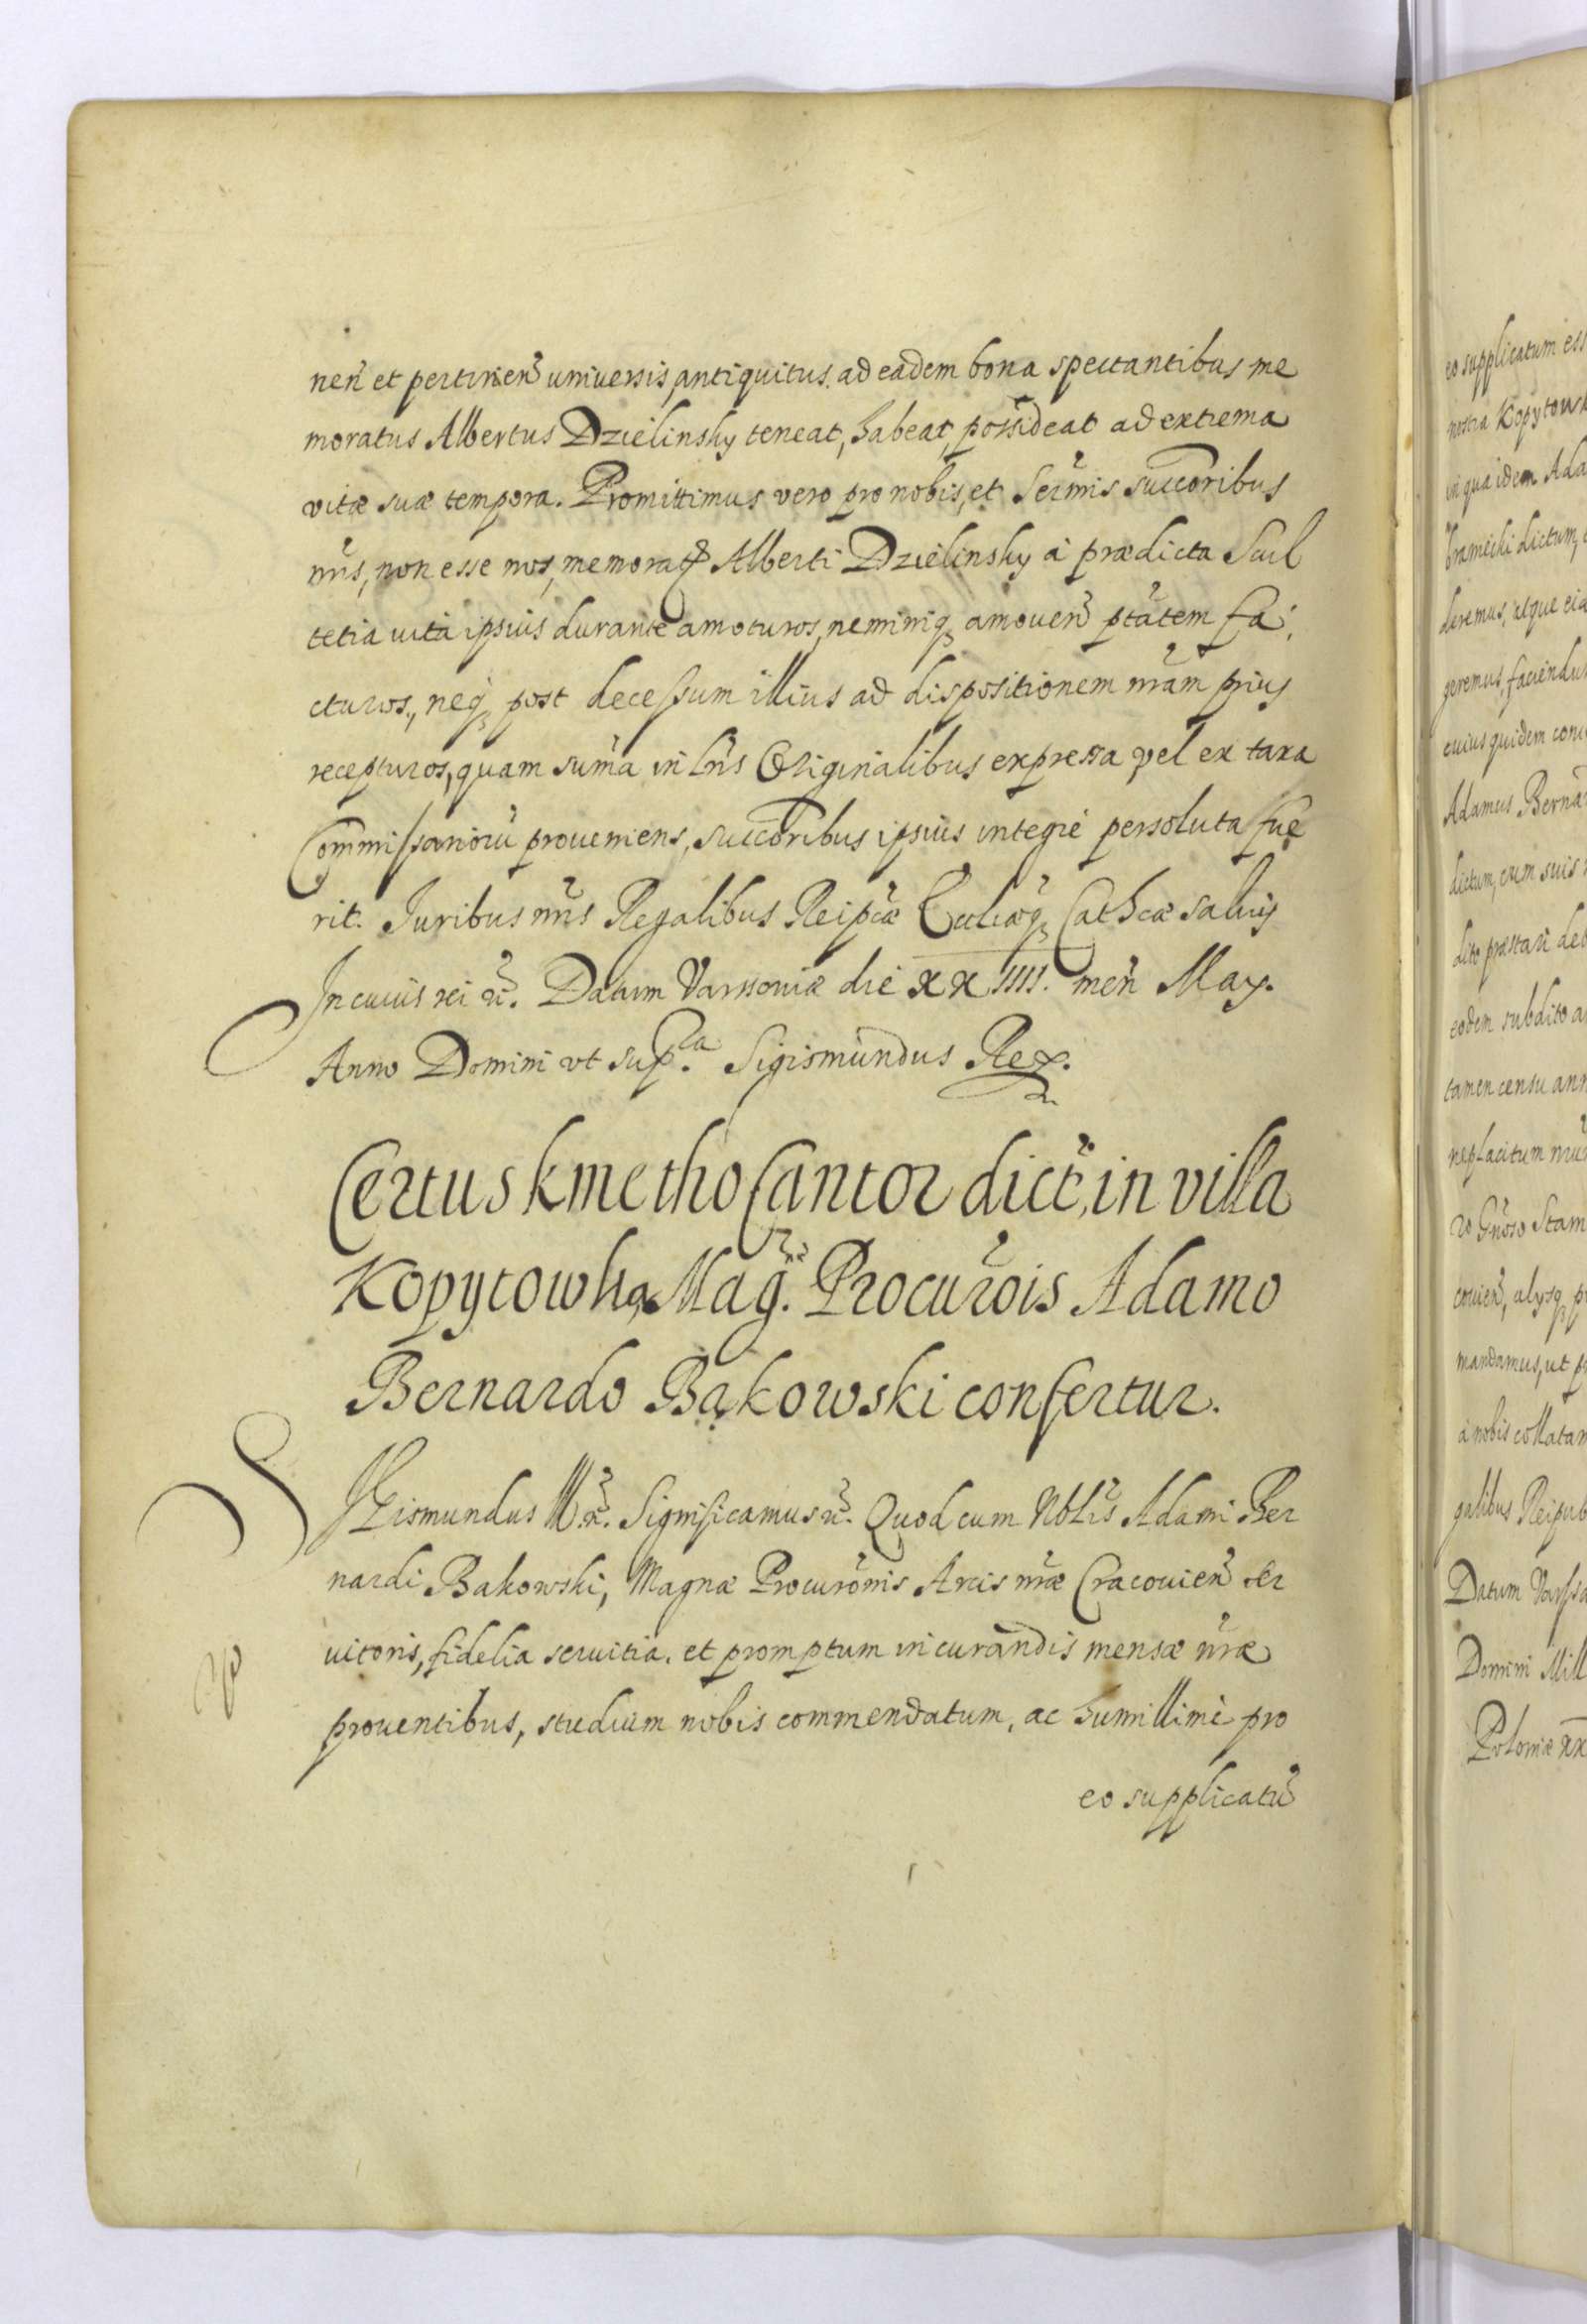 nen̄ et pertinen̄ uniuersis, antiquitus ad eadem bona spectantibus me
moratus Albertus Dzielinsky teneat, habeat, possideat ad extrema
vitæ suæ tempora. Promittimus vero pro nobis, et Sermis succoribus
nris, non esse nos, memoratū Alberti Dzielinsky à prædicta Scul
tetia uita ipsius durante amoturos, neminiq3 amouen̄ ptātem fa,
cturos, neq3 post decessum illius ad dispositionem nrām prius
recepturos, quam sum̄a in lris Originalibus expressa vel ex taxa
Commissariorū proueniens, succoribus ipsius integre persoluta fue
rit. Juribus nris Regalibus Reipcæ Ecclæq3 Cathcæ saluis
In cuius rei tt. Datum Varssouiæ die XXIIII. men̄ May.
Anno Domini vt supra. Sigismundus Rex.
Certus kmetho Cantor dict, in villa
Kopytowka Mag. Procurōis Adamo
Bernardo Bąkowski confertur.
SIgismundus III. tt. Significamus tt. Quod cum Nblis Adami Ber
nardi Bakowski, Magnæ Procurōnis Arcis nræ Cracouien̄ ser
uitoris, fidelia seruitia, et promptum in curandis mensæ nræ
prouentibus, studium nobis commendatum, ac humillimè pro
eo supplicatū
eo supplicatum ess
nostra Kopytowk
in qua idem Ada
bramicki dictum,
deremus, atque eid
geremus, faciendu
cuius quidem
Adamus Berna
dictum, cum suis
dito præstari deb
eodem subdito a
tamen censu ann
neplacitum
Gnōso Stam
couien̄, alysq3
mandamus, ut
à nobis collatam
galibus Reipub
Datum Varsso
Domini Mill
Poloniæ xx